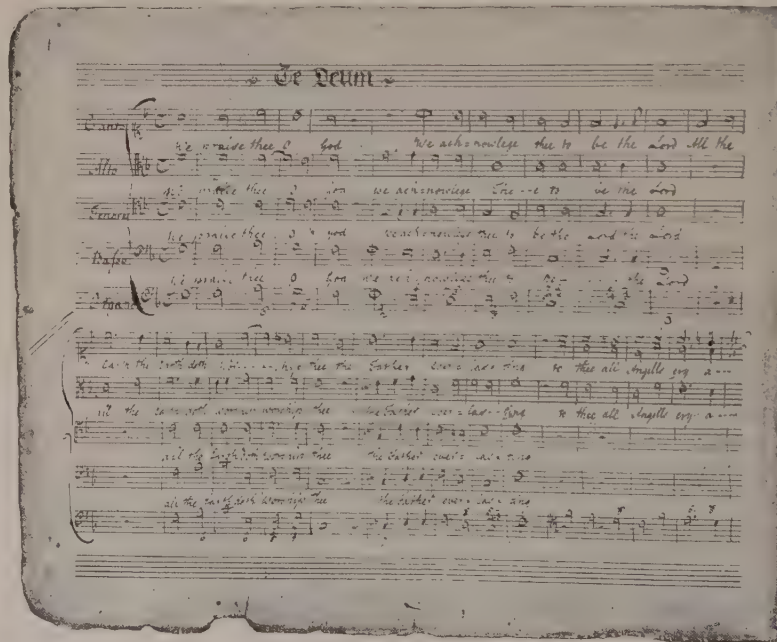 Te Deum
Canto
We praise thee O God We acknowlege thee to be the Lord All the
Alto
We praise thee O God we acknowlege thee to be the Lord
Tenore
We praise thee O God we acknowlege thee to be the Lord the Lord
Basso
We praise thee O God we acknowlege thee to be the Lord
Organo
Earth the Earth doth thee the Father ever=las=ting to thee all Angells cry a
All the Earth doth worship worship thee the Father ever=las=ting to thee all Angells cry a
all the Earth doth worship thee the Father ever=las=ting
all the Earth doth worship thee the Father ever=las=ting